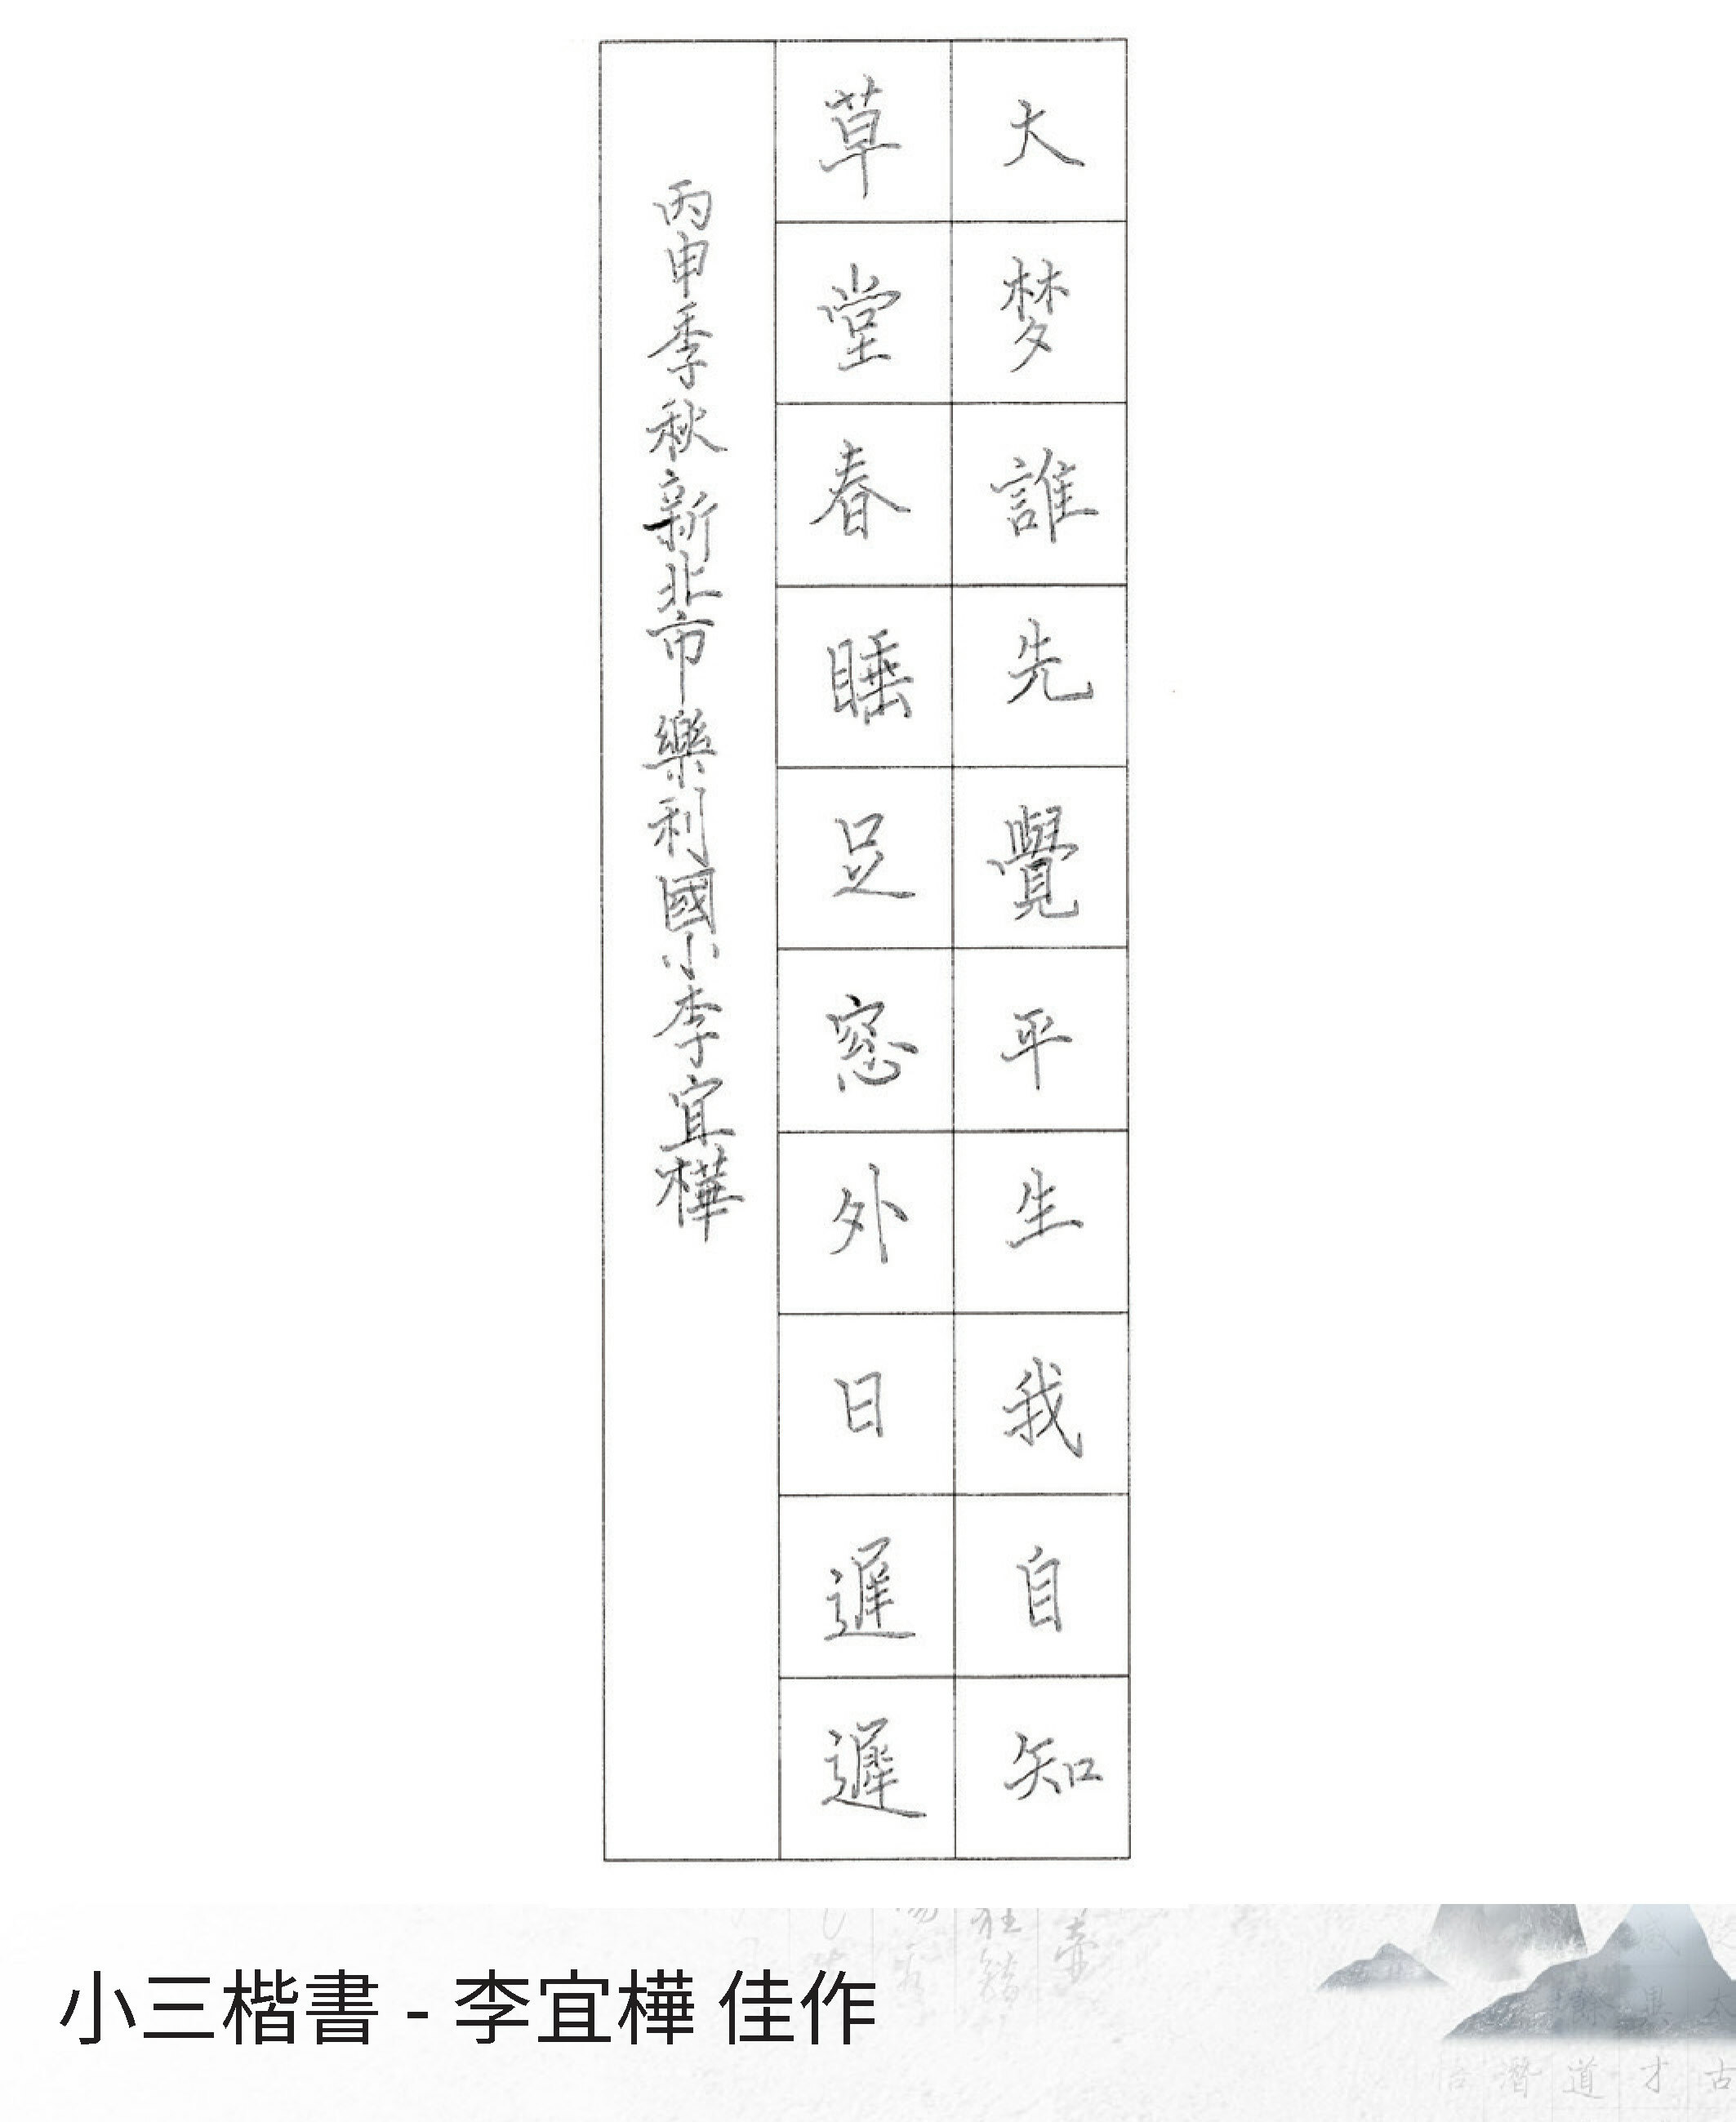 大梦誰先覺平生我自知
草堂春睡足窓外日遲遲
丙申季秋新北市樂利國小李宜樺
小三楷書 - 李宜樺 佳作